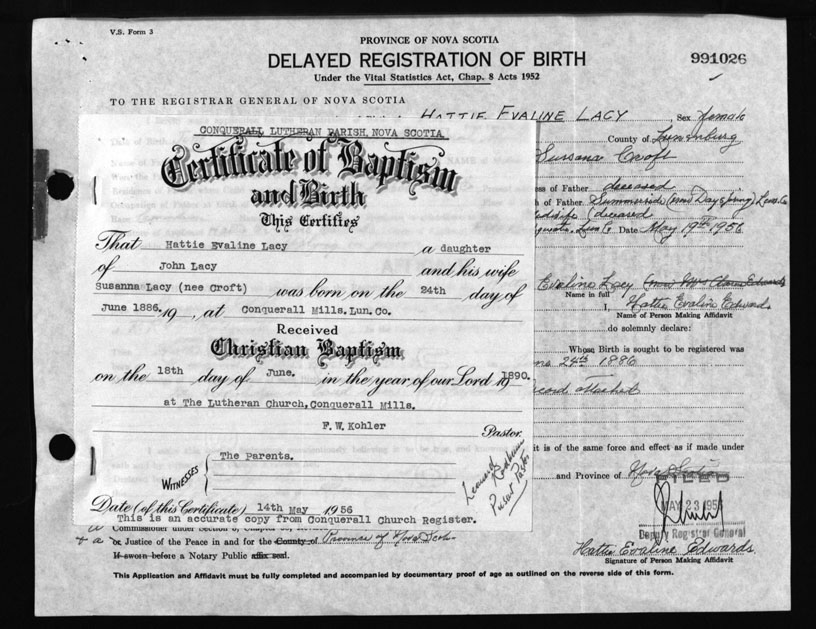 V.S. Form 3
PROVINCE OF NOVA SCOTIA
DELAYED REGISTRATION OF BIRTH
991026
Under the Vital Statistics Act, Chap. 8 Acts 1952
TO THE REGISTRAR GENERAL OF NOVA SCOTIA
HATTIE EVALINE LACY Sex female
County of Lunenburg
Sussana Croft
ess of Father deceased
of Father Summerside
deceased
Date May 19th 1956
Evaline Lacy
Name in full
I, Hattie Evaline Edwards
Name of Person Making Affidavit
do solemnly declare:
Whose Birth is sought to be registered was
24th 1886
record attached
it is of the same force and effect as if made under
and Province of Nova Scotia
MAY 23 195
Deputy Registrar General
Hattie Evaline Edwards.
Signature of Person Making Affidavit
CONQUERALL LUTHERAN PARISH, NOVA SCOTIA
Certificate of Baptism
and Birth
This Certifies
That Hattie Evaline Lacy a daughter
of John Lacy and his wife
Susanna Lacy (nee Croft) was born on the 24th day of
June 1886. 19 , at Conquerall Mills. Lun. Co.
Received
Christian Baptism
on the 18th day of June. in the year of our Lord 19 1890.
at The Lutheran Church, Conquerall Mills.
F. W. Kohler Pastor
WITNESSES The Parents.
Present Pastor
Date (of this Certificate) 14th May 1956
This is an accurate copy from Conquerall Church Register.
or Justice of the Peace in and for the County of Province of Nova Scotia
If sworn before a Notary Public affix seal.
This Application and Affidavit must be fully completed and accompanied by documentary proof of age as outlined on the reverse side of this form.